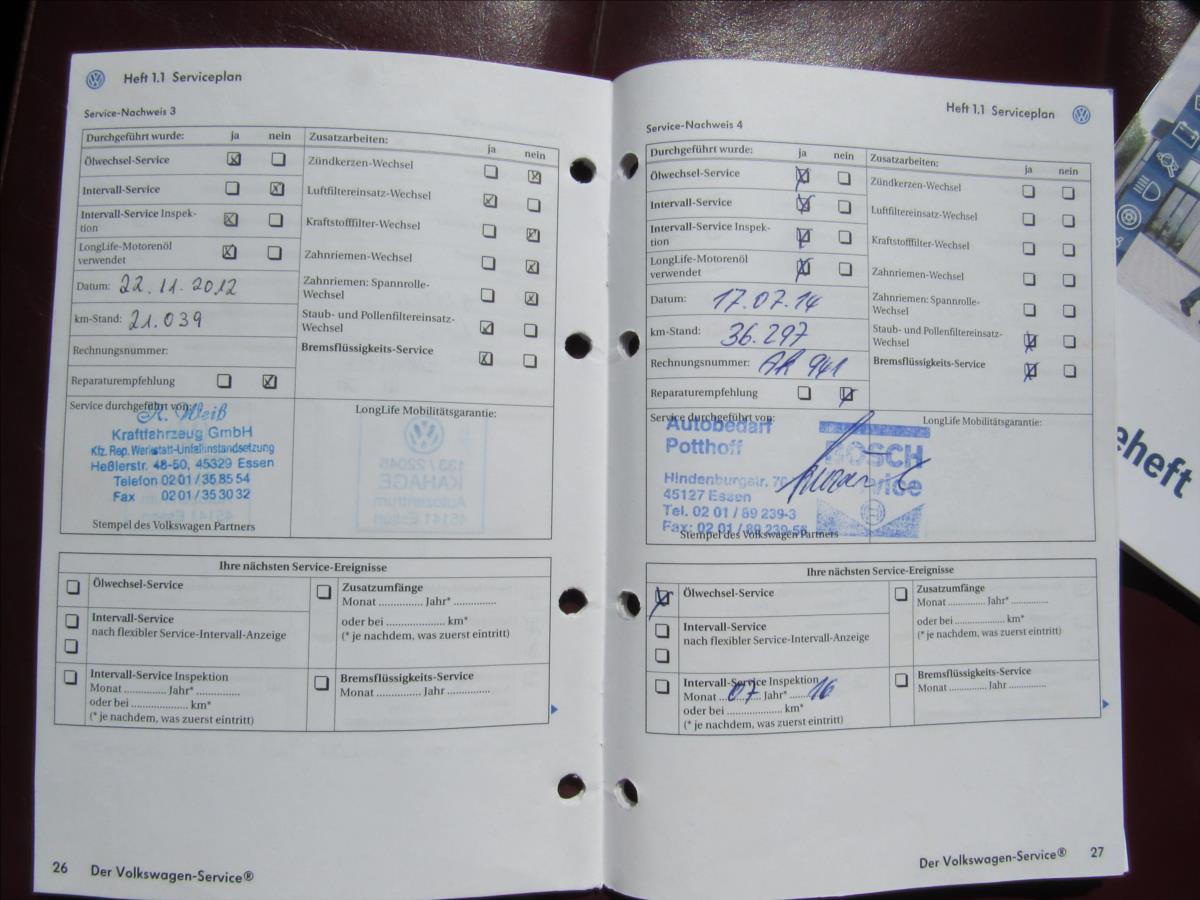 Heft 1.1 Serviceplan
Service-Nachweis 3
Durchgeführt wurde: ja nein
Ölwechsel-Service
Intervall-Service
Intervall-Service Inspek-
tion
LongLife-Motorenöl
verwendet
Datum: 22.11.2012
km-Stand: 21.039
Rechnungsnummer:
Reparaturempfehlung
Zusatzarbeiten: ja nein
Zündkerzen-Wechsel
Luftfiltereinsatz-Wechsel
Kraftstofffilter-Wechsel
Zahnriemen-Wechsel
Zahnriemen: Spannrolle-
Wechsel
Staub- und Pollenfiltereinsatz-
Wechsel
Bremsflüssigkeits-Service
Service durchgeführt von:
R. Weiß
Kraftfahrzeug GmbH
Kfz. Rep. Werkstatt-Unfallinstandsetzung
Heßlerstr. 48-50, 45329 Essen
Telefon 02 01 / 35 85 54
Fax 02 01 / 35 30 32
Stempel des Volkswagen Partners
LongLife Mobilitätsgarantie:
133 / 22046
KAHAGE
Autozentrum
45141 Essen
Ihre nächsten Service-Ereignisse
Ölwechsel-Service
Intervall-Service
nach flexibler Service-Intervall-Anzeige
Intervall-Service Inspektion
Monat .............. Jahr* ..............
oder bei .................... km*
(* je nachdem, was zuerst eintritt)
Zusatzumfänge
Monat .............. Jahr* ..............
oder bei .................... km*
(* je nachdem, was zuerst eintritt)
Bremsflüssigkeits-Service
Monat .............. Jahr ..............
26 Der Volkswagen-Service®
Heft 1.1 Serviceplan
Service-Nachweis 4
Durchgeführt wurde: ja nein
Ölwechsel-Service
Intervall-Service
Intervall-Service Inspek-
tion
LongLife-Motorenöl
verwendet
Datum: 17.07.14
km-Stand: 36.297
Rechnungsnummer: AR 941
Reparaturempfehlung
Zusatzarbeiten: ja nein
Zündkerzen-Wechsel
Luftfiltereinsatz-Wechsel
Kraftstofffilter-Wechsel
Zahnriemen-Wechsel
Zahnriemen: Spannrolle-
Wechsel
Staub- und Pollenfiltereinsatz-
Wechsel
Bremsflüssigkeits-Service
Service durchgeführt von:
Autobedarf
Potthoff
Hindenburgstr. 70
45127 Essen
Tel. 02 01 / 89 239-3
Fax: 02 01 / 89 239-56
BOSCH
Service
Stempel des Volkswagen Partners
LongLife Mobilitätsgarantie:
Ihre nächsten Service-Ereignisse
Ölwechsel-Service
Intervall-Service
nach flexibler Service-Intervall-Anzeige
Intervall-Service Inspektion
Monat ... 07 ... Jahr* ... 16
oder bei .................... km*
(* je nachdem, was zuerst eintritt)
Zusatzumfänge
Monat .............. Jahr* ..............
oder bei .................... km*
(* je nachdem, was zuerst eintritt)
Bremsflüssigkeits-Service
Monat .............. Jahr ..............
Der Volkswagen-Service® 27
eheft